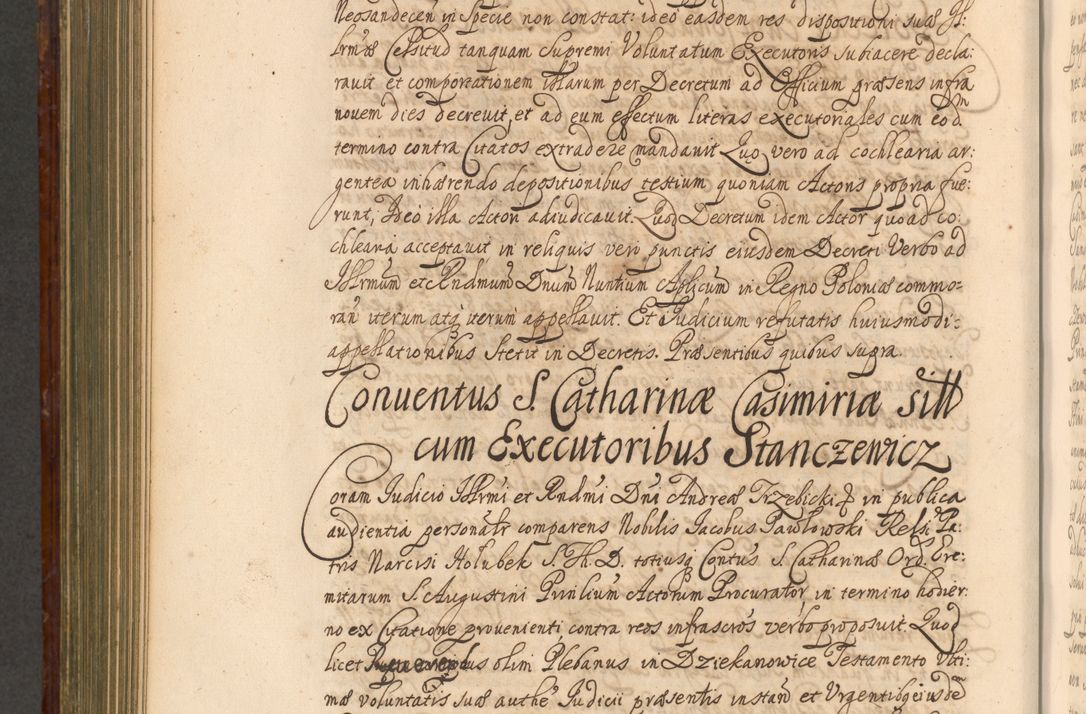 Neosandecen in specie non constat: ideo easdem res dispositioni suæ Il-
lrmæ Celsitud tanquam Supremi Voluntatum Executoris subiacere decla:
rauit et comportationem illarum per Decretum ad Officium præsens infra
nouem dies decreuit, et ad eum effectum literas executoriales cum eodm
termino contra Citatos extradere mandauit Quo vero ad cochlearia ar:
gentea inhærendo depositionibus testium quoniam Actoris propria fue:
runt, Ideo illa Actori adiudicauit. Quod Decretum idem Actor quoad co:
chlearia acceptauit in reliquis vero punctis eiusdem Decreti Verbo ad
Illrmum et Rndmum Dnum Nuntium Aplicum in Regno Poloniæ commo-
ran iterum atq iterum appellauit. Et Iudicium refutatis huiusmodi:
appellationibus Stetit in Decretis. Præsentibus quibus supra.
Conuentus S. Catharinæ Casimiriæ sitt
cum Executoribus Stanczewicz
Coram Iudicio Illrmi et Rndmi Dni Andreæ Trzebicki in publica
audientia personalr comparens Nobilis Iacobus Pawlowski Relsi Pa:
tris Narcisi Holubek S. Th. D. totiusq Contus S. Catharinæ Ord. Ere:
mitarum S. Augustini Prinlium Actorum Procurator in termino hodier:
no ex Citatione proueniente contra reos infrascros verbo proposuit. Quod
licet olim Plebanus in Dziekanowice Testamento Ulti:
mæ voluntatis suæ authe Iudicii præsentis instan et Urgentibq eiusdem